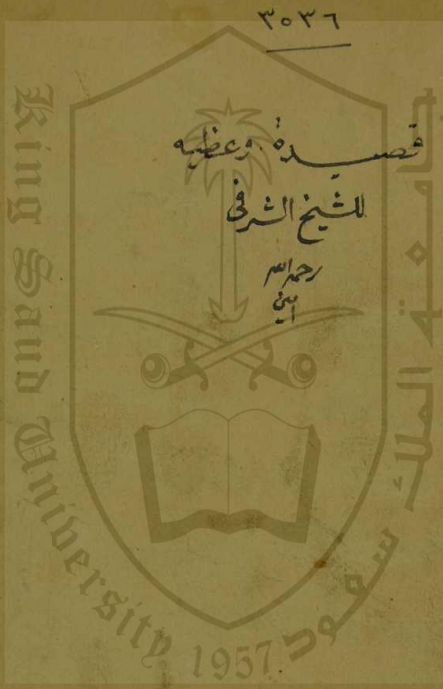 ٣٥٣٦
قصيدة وعظيه
للشيخ الشرفي
رحمه الله
امين
King Saud University 1957
جامعة الملك سعود